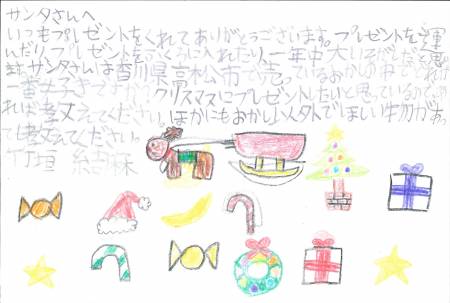 サンタさんへ
いつもプレゼントをくれてありがとうございます。プレゼントを運
んだりプレゼントをふくろに入れたり一年中大いそがしだと思い
ます。サンタさんは香川県高松市で売っているおかしの中でどれが
一番好きですか?クリスマスにプレゼントしたいと思っているのでよ
ければ教えてください。ほかにもおかし以外でほしい物があっ
ても教えてください。
竹垣 結麻